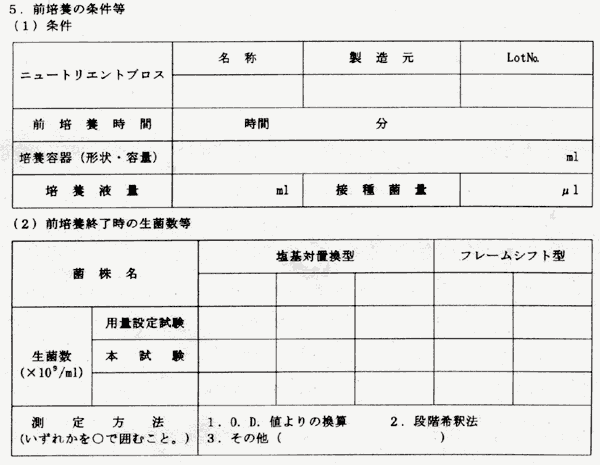 5．前培養の条件等
(1) 条件
ニュートリエントブロス
名 称 製 造 元 Lot№
前 培 養 時 間 時間 分
培養容器（形状・容量） ml
培 養 液 量 ml 接 種 菌 量 μl
(2) 前培養終了時の生菌数等
菌 株 名 塩基対置換型 フレームシフト型
生菌数
(×10⁹/ml)
用量設定試験
本 試 験
測 定 方 法
(いずれかを○で囲むこと。)
1．O．D．値よりの換算 2．段階希釈法
3．その他（ ）